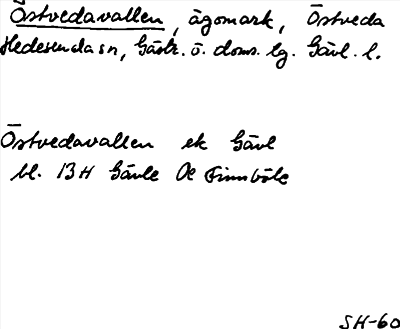 Östvedavallen, ägomark, Östveda
Hedesunda sn, Gästr. ö. doms. lg. Gävl. l.
Östvedavallen ek Gävl
bl. 13H Gävle Oe Finnböle
SH-60